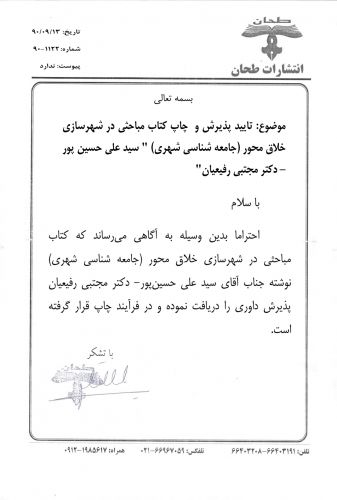 طحان
انتشارات طحان
تاریخ: ۹۰/۰۹/۱۳
شماره: ۱۱۲۲-۹۰
پیوست: ندارد
بسمه تعالی
موضوع: تایید پذیرش و چاپ کتاب مباحثی در شهرسازی
خلاق محور (جامعه شناسی شهری) " سید علی حسین پور
– دکتر مجتبی رفیعیان"
با سلام
احتراما بدین وسیله به آگاهی می‌رساند که کتاب
مباحثی در شهرسازی خلاق محور (جامعه شناسی شهری)
نوشته جناب آقای سید علی حسین‌پور– دکتر مجتبی رفیعیان
پذیرش داوری را دریافت نموده و در فرآیند چاپ قرار گرفته
است.
با تشکر
تلفن: ۶۶۴۰۳۱۹۱–۶۶۴۰۳۲۰۸ تلفکس: ۶۶۹۶۷۰۵۹-۰۲۱ همراه: ۱۹۸۵۶۱۷-۰۹۱۲